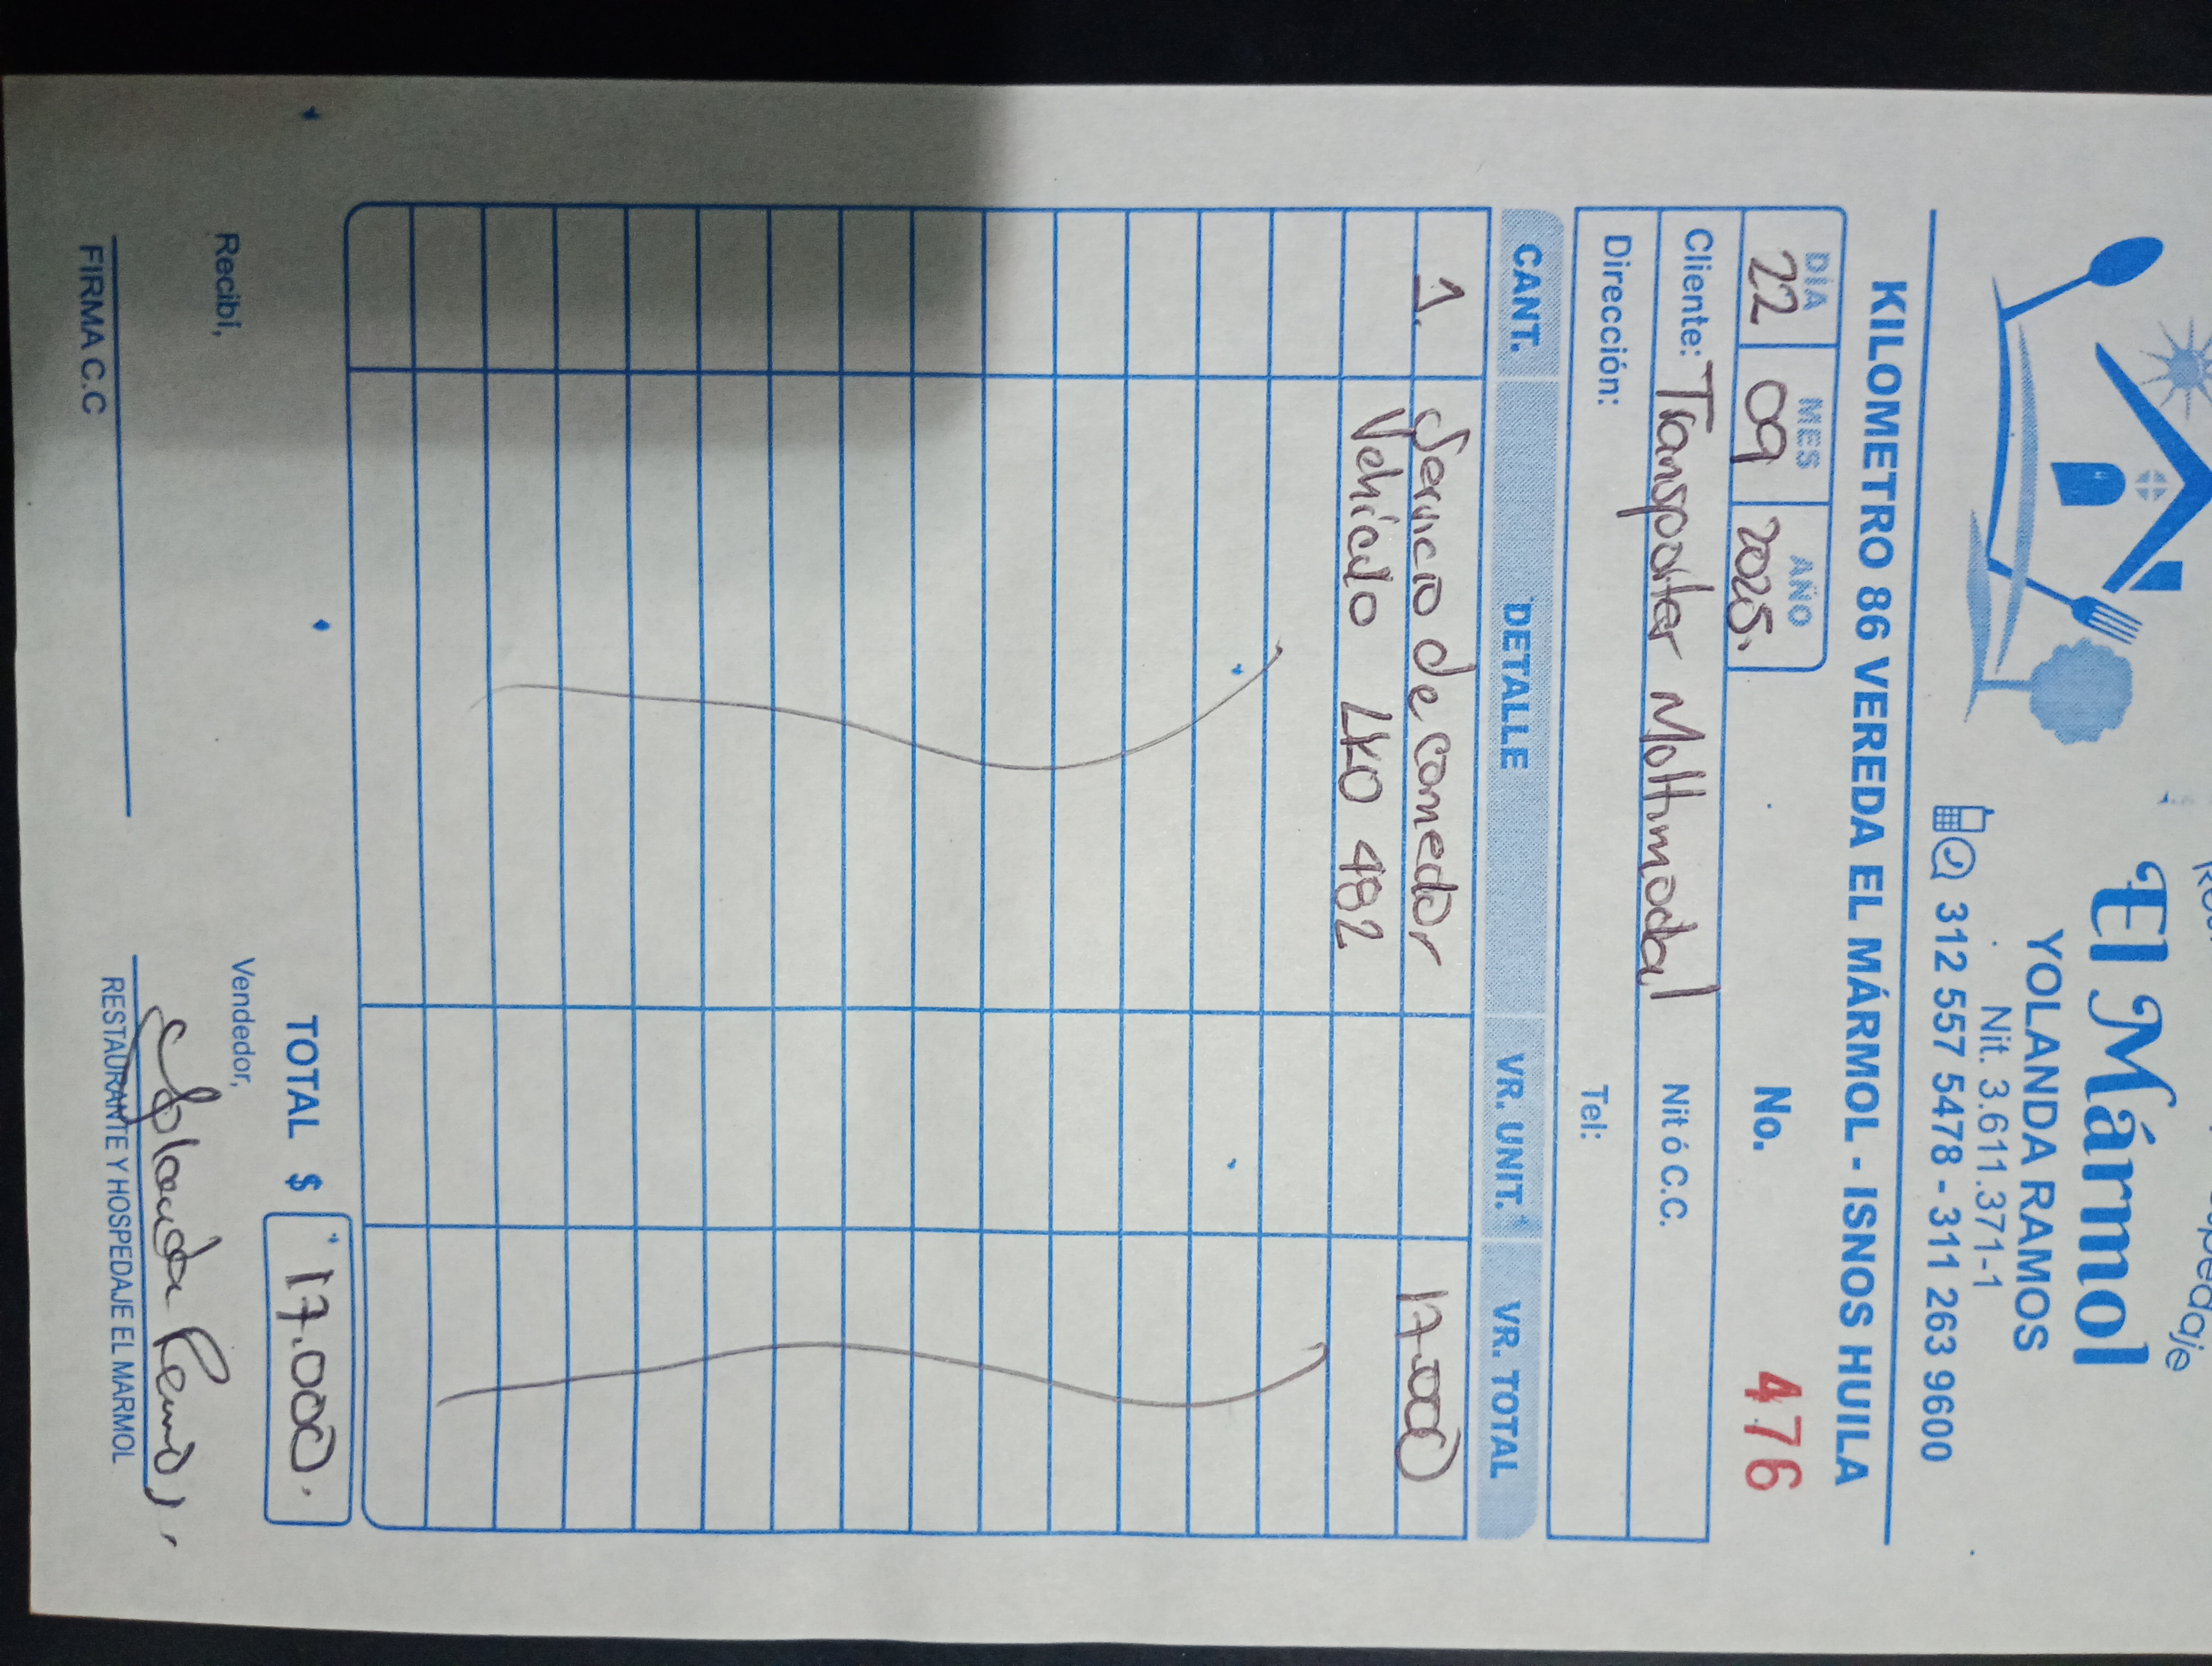 El Mármol
YOLANDA RAMOS
Nit. 3.611.371-1
312 557 5478 - 311 263 9600
KILOMETRO 86 VEREDA EL MÁRMOL - ISNOS HUILA
DÍA MES AÑO
22 09 2025.
No. 476
Cliente: Transporter Moltimodal Nit ó C.C.
Dirección: Tel:
CANT. DETALLE VR. UNIT. VR. TOTAL
1. Servicio de comedor 17.000
Vehiculo LKO 482
TOTAL $ 17.000.
Recibí, Vendedor,
Yolanda Ramos
FIRMA C.C RESTAURANTE Y HOSPEDAJE EL MARMOL